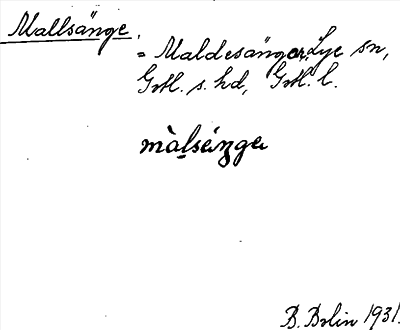 Mallsänge
= Maldesänger, Lye sn,
Gotl. s. hd, Gotl. l.
màlséŋgər
B. Bolin 1931.